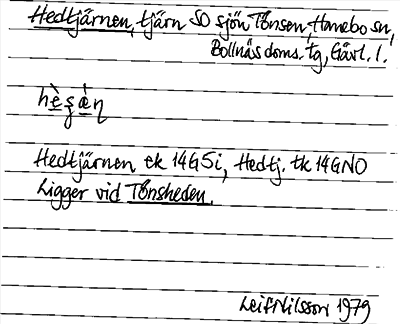 Hedtjärnen, tjärn SO sjön Tönsen, Hanebo sn,
Bollnäs doms. tg, Gävl. l.
hè̱ʂæ̱̀ɳ
Hedtjärnen tk 14G5i, Hedtj. tk 14GNO
Ligger vid Tönsheden.
Leif Nilsson 1979